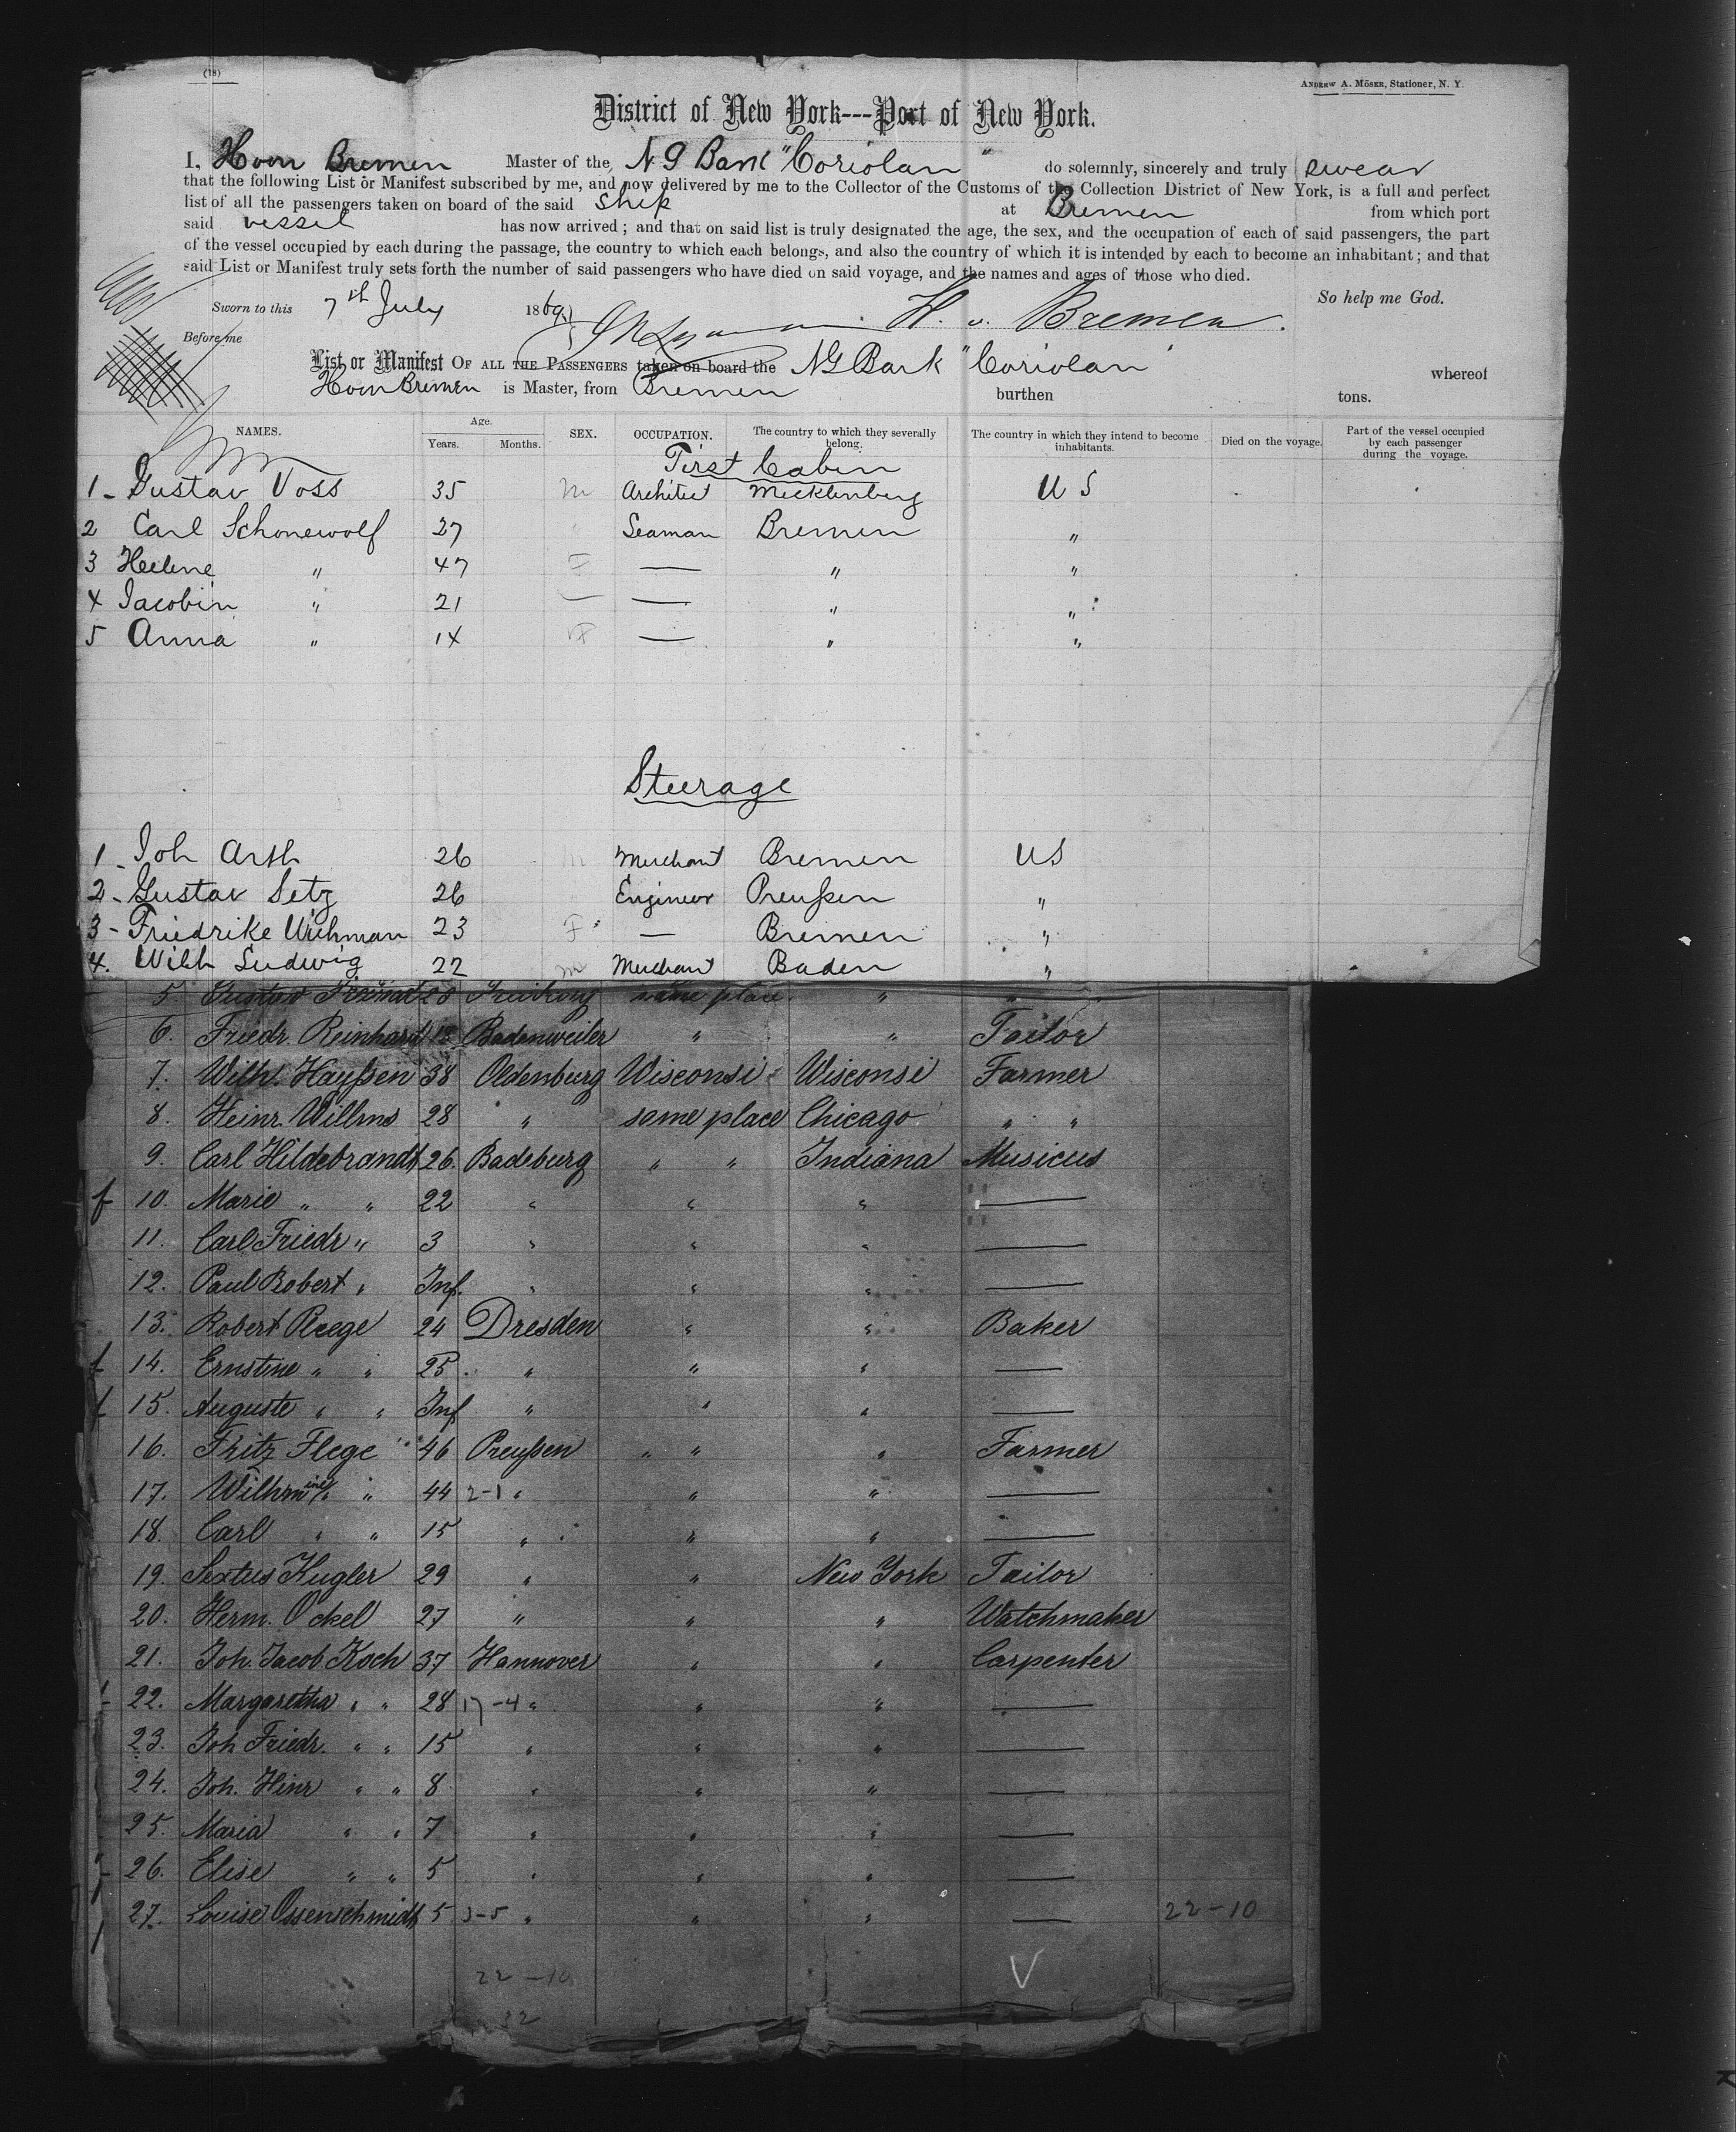 (18)
ANDREW A. MÖSER, Stationer, N. Y.
District of New York---Port of New York.
I, H von Bremen Master of the N G Bark "Coriolan" do solemnly, sincerely and truly swear
that the following List or Manifest subscribed by me, and now delivered by me to the Collector of the Customs of the Collection District of New York, is a full and perfect
list of all the passengers taken on board of the said Ship at Bremen from which port
said vessel has now arrived; and that on said list is truly designated the age, the sex, and the occupation of each of said passengers, the part
of the vessel occupied by each during the passage, the country to which each belongs, and also the country of which it is intended by each to become an inhabitant; and that
said List or Manifest truly sets forth the number of said passengers who have died on said voyage, and the names and ages of those who died.
So help me God.
Sworn to this 7th July 1869 H. v. Bremen.
Before me
List or Manifest OF ALL THE PASSENGERS taken on board the N G Bark "Coriolan" whereof
H von Bremen is Master, from Bremen burthen tons.
NAMES. Age. Years. Months. SEX. OCCUPATION. The country to which they severally belong. The country in which they intend to become inhabitants. Died on the voyage. Part of the vessel occupied by each passenger during the voyage.
First Cabin
1 - Gustav Voss 35 m Architect Mecklenberg U S
2 Carl Schonewolf 27 " Seaman Bremen "
3 Heelene " 47 F — " "
4 Jacobin " 21 — — " "
5 Anna " 14 F — " "
Steerage
1 - Joh Arth 26 m Merchant Bremen U S
2 - Gustav Setz 26 Engineer Preußen "
3 - Friedrike Wichman 23 F — Bremen "
4. Wilh Ludwig 22 m Merchant Baden "
5. Gustav same place " "
6. Friedr. Reinhard 18 Badenweiler " " Tailor
7. Wilh. Hayßen 38 Oldenburg Wisconsi Wisconsi Farmer
8. Heinr. Willms 28 " same place Chicago " "
9. Carl Hildebrandt 26. Badeburg " " Indiana Musicus
f 10. Marie " " 22 " " " —
11. Carl Friedr " 3 " " " —
12. Paul Robert " Inf. " " " —
13. Robert Plege 24 Dresden " " Baker
f 14. Ernstine " " 25. " " " —
f 15. Auguste " " Inf " " " —
16. Fritz Flege 46 Preußen " " " Farmer
17. Wilhmine " " 44 2-1 " " " —
18. Carl " " 15 " " " —
19. Sextus Kugler 29 " " New York Tailor
20. Herm. Ockel 27 " " " Watchmaker
21. Joh. Jacob Koch 37 Hannover " " Carpenter
22. Margaretha " " 28 17-4 " " " —
23. Joh Friedr. " " 15 " " " —
24. Joh. Hinr " " 8 " " " —
25. Maria " " 7 " " " —
26. Elise " " 5 " " " —
27. Louise Ossenschmidt 5 3-5 " " " — 22-10
22-10
32
V